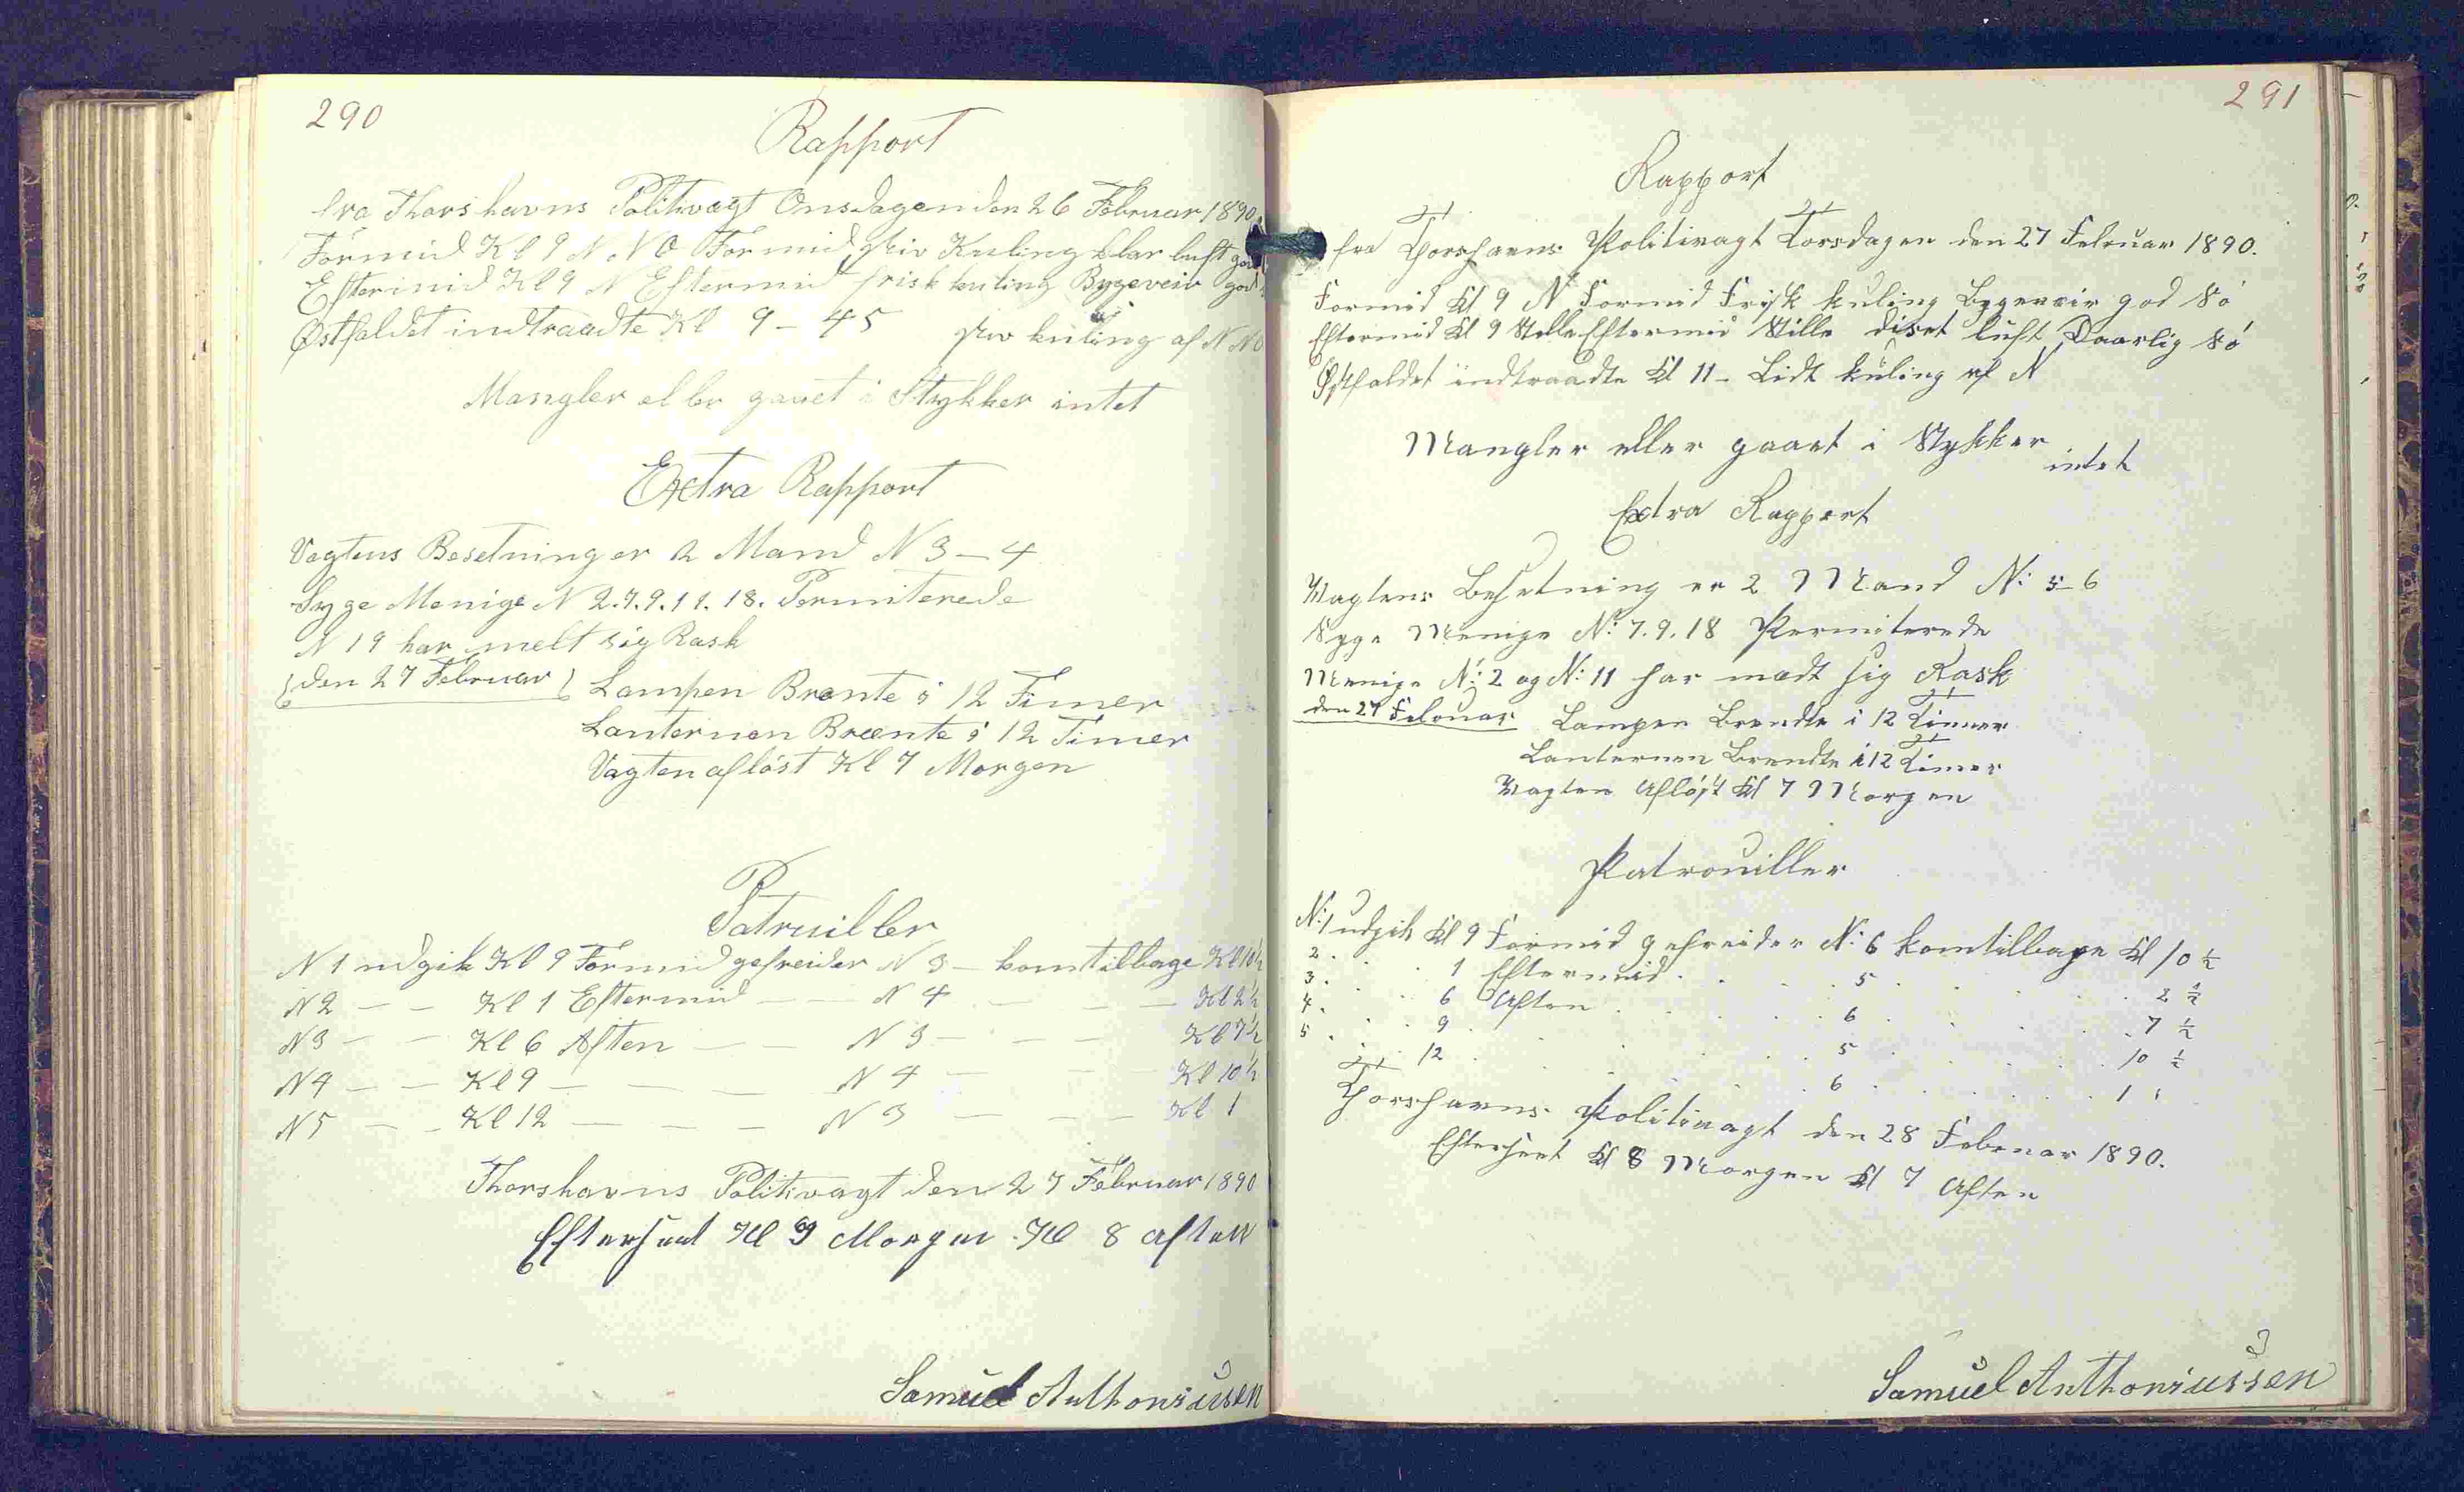 290
Rapport
fra Thorshavns Politivagt Onsdagen den 26 Februar 1890
Formid Kl 9 N N O Formid stiv Kuling klar luft god
Eftermid Kl 9 N Eftermid frisk kuling Bygeveir god
Østfaldet indtraadte Kl 9 - 45 stiv kuling af N N O
Mangler eller gaaet i Stykker intet
Extra Rapport
Vagtens Besetning er 2 Mand N 3 - 4
Syge Menige N 2.7.9.11.18. Permiterede
N 19 har melt sig Rask
den 27 Februar Lampen Brænte i 12 Timer
Lanternen Brænte i 12 Timer
Vagten afløst Kl 7 Morgen
Patruiller
N 1 udgik Kl 9 Formid gefreider N 3 - kom tilbage Kl 10 1/2
N 2 - - Kl 1 Eftermid - N 4 - - Kl 2 1/2
N 3 - - Kl 6 Aften - - N 3 - - - Kl 7 1/2
N 4 - - Kl 9 - - - N 4 - - Kl 10 1/2
N 5 - - Kl 12 - - - N 3 - - - Kl 1
Thorshavns Politivagt den 27 Februar 1890
Efterseet Kl 9 Morgen Kl 8 Aften
Samuel Anthoniussen
291
Rapport
fra Thorshavns Politivagt Torsdagen den 27 Februar 1890.
Formid Kl 9 N Formid Frisk kuling Bygeveir god Sö
Eftermid Kl 9 Stelle Eftermid Stille diset luft Daarlig Sö
Østfaldet indtraadte Kl 11 - Lidt kuling af N
Mangler eller gaaet i Stykker
intet
Extra Rapport
Vagtens Besetning er 2 Mand N: 5-6
Syge Menige N: 7.9.18 Permiterede
Menige N: 2 og N: 11 har mældt sig Rask
den 27 Februar Lampen Brendte i 12 Timer
Lanternen Brendte i 12 Timer
Vagten Afløst Kl 7 Morgen
Patrouiller
N: 1 udgik Kl 9 Formid gefreider N: 6 kom tilbage Kl 10 1/2
2 . . . 1 Eftermid . . . 5 . . . 2 1/2
3 . . . 6 Aften . . . 6 . . . 7 1/2
4 . . . 9 . . . 5 . . . 10 1/2
5 . . . 12 . . . 6 . . . 1
Thorshavns Politivagt den 28 Februar 1890.
Efterseet Kl 8 Morgen Kl 7 Aften
Samuel Anthoniussen